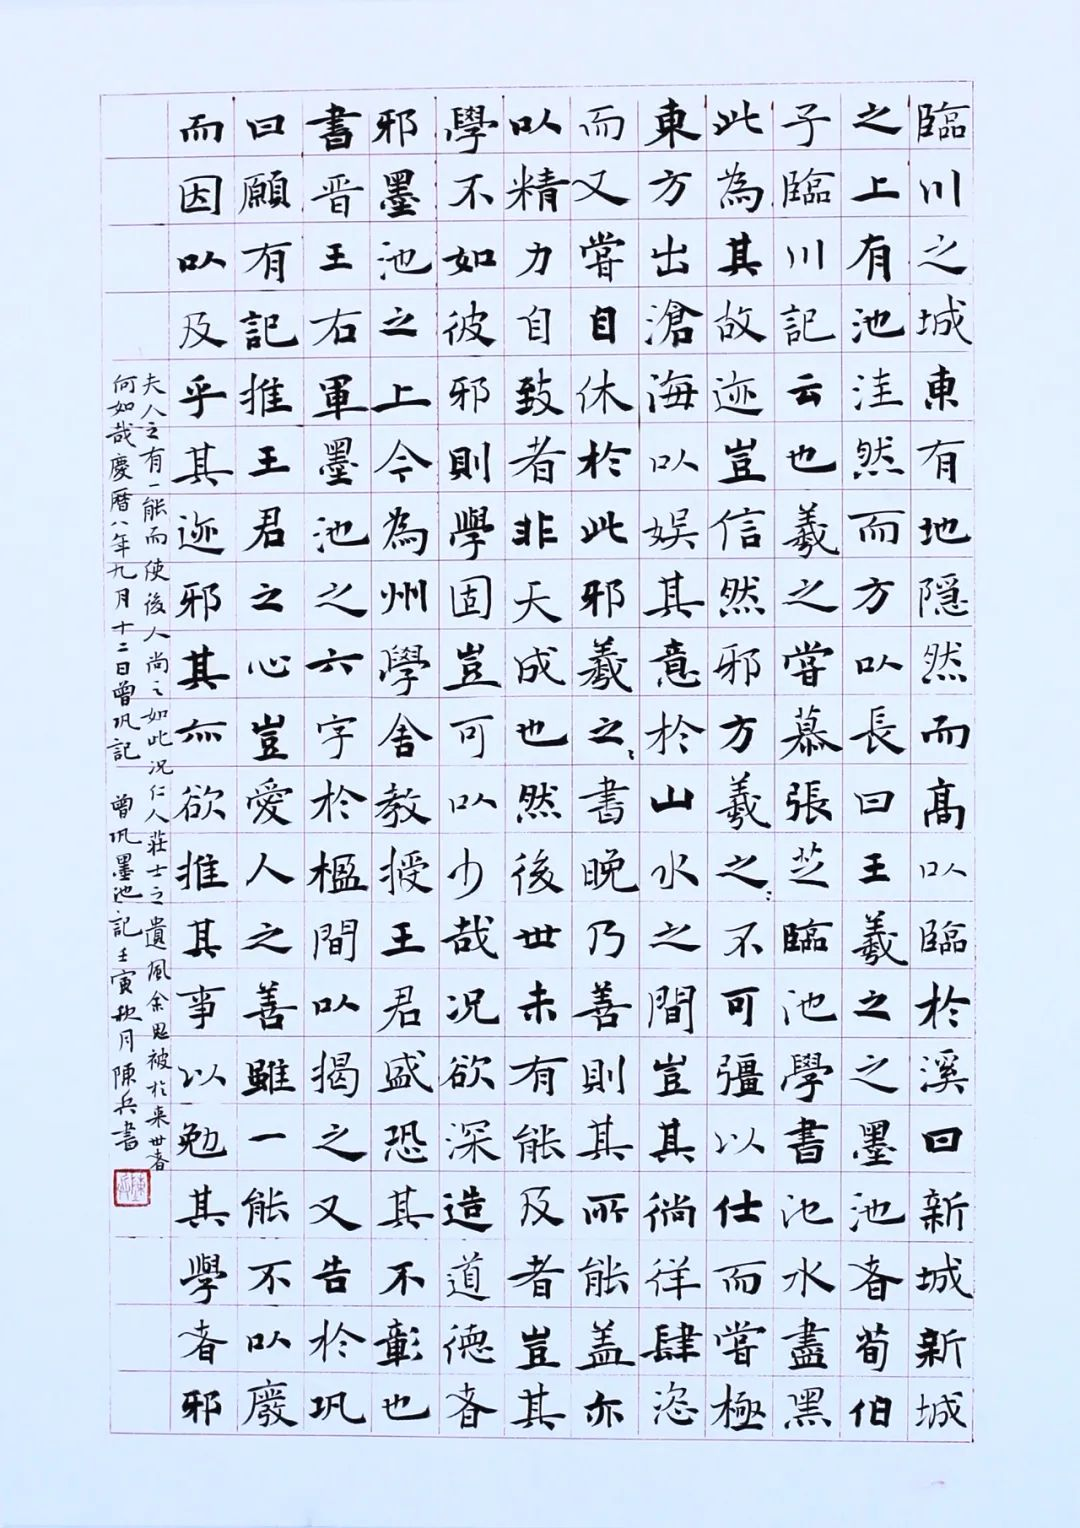 臨川之城東有地隱然而高以臨於溪曰新城新城
之上有池洼然而方以長曰王羲之之墨池者荀伯
子臨川記云也羲之嘗慕張芝臨池學書池水盡黑
此為其故迹豈信然邪方羲之〻不可彊以仕而嘗極
東方出滄海以娛其意於山水之間豈其徜徉肆恣
而又嘗自休於此邪羲之〻書晚乃善則其所能盖亦
以精力自致者非天成也然後世未有能及者豈其
學不如彼邪則學固豈可以少哉况欲深造道德者
邪墨池之上今為州學舍教授王君盛恐其不彰也
書晋王右軍墨池之六字於楹間以揭之又告於巩
曰願有記推王君之心豈愛人之善雖一能不以廢
而因以及乎其迹邪其亦欲推其事以勉其學者邪
夫人之有一能而使後人尚之如此况仁人莊士之遺風余思被於来世者
何如哉慶曆八年九月十二日曾巩記 曾巩墨池記壬寅秋月陳兵書